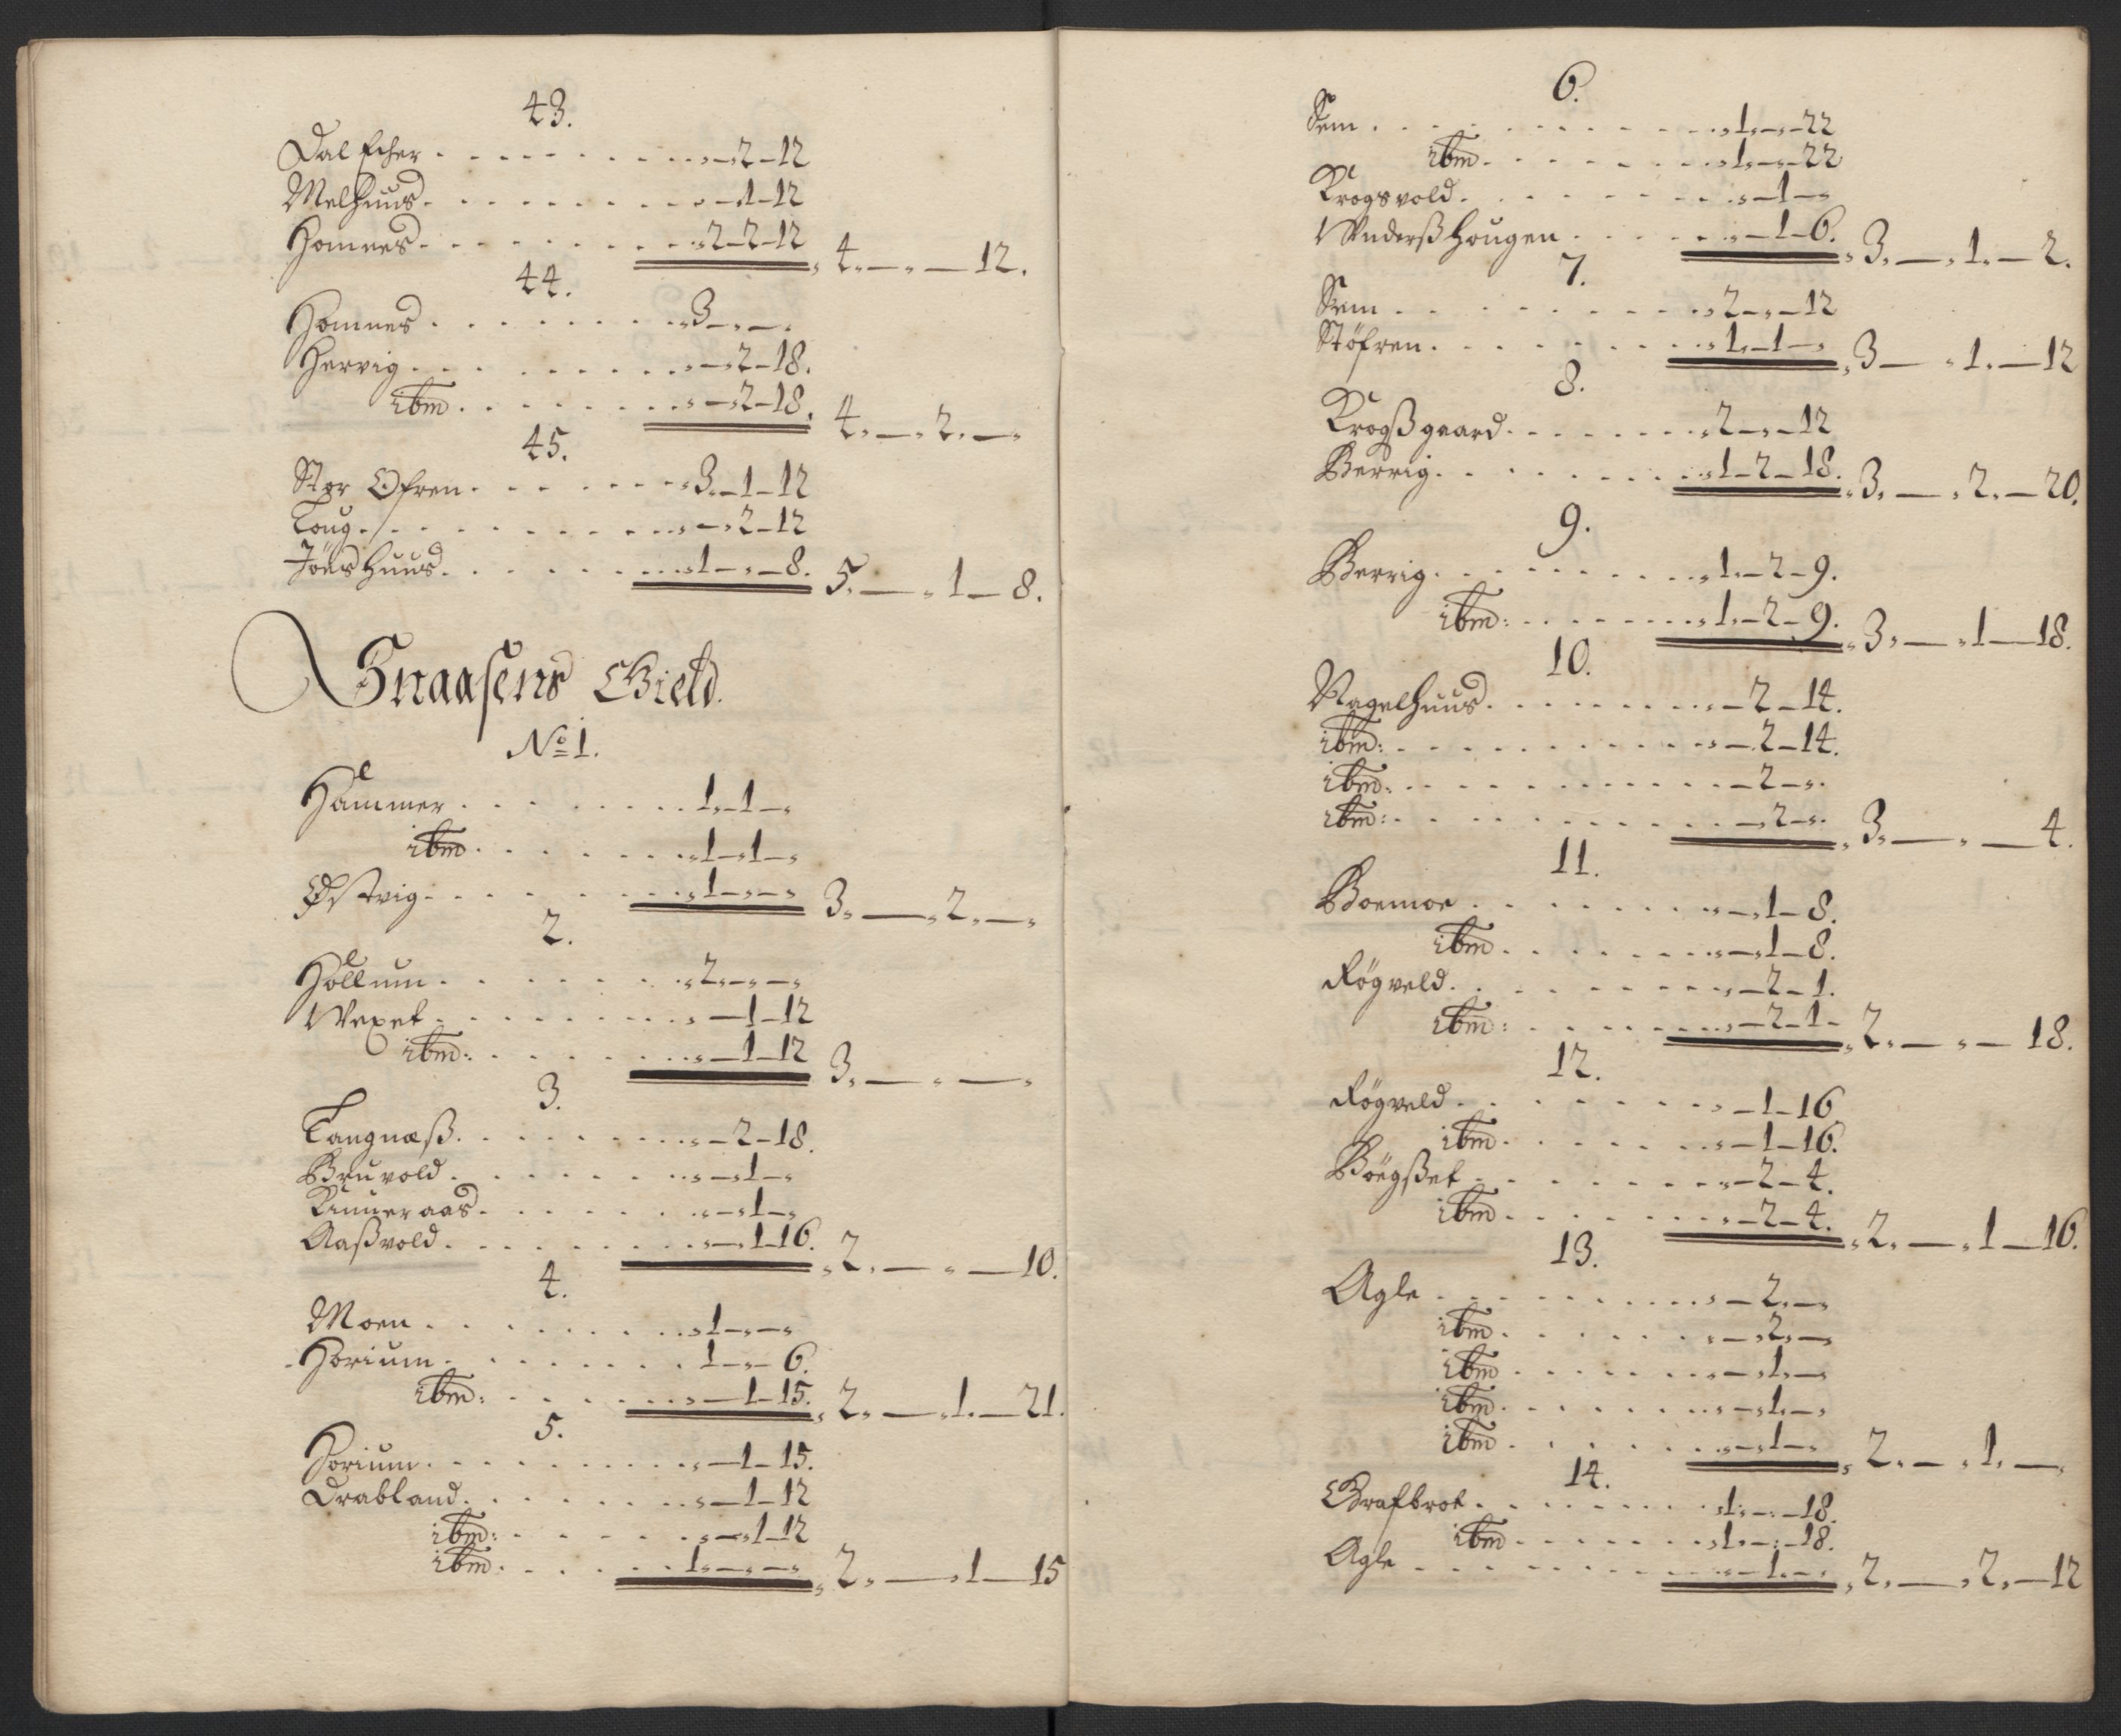 43.
Dal Echer . . . . . . . . . „—2—12
Melhuus . . . . . . . . . „—1—12
Homnes . . . . . . . . „2—2—12 „4.—„—12.
44.
Homnes . . . . . . . . „3—„—„
Hervig . . . . . . . . . „—2—18.
ibm . . . . . . . . „—2—18. 4.—„2.—„
45.
Stor Øfren . . . . . . „3.—1—12
Loug . . . . . . . . . „—2—12
Jöns Huus . . . . . . „1—„—8. 5.—„1—8.
Snaasens Gield.
No 1.
Hammer . . . . . . . . 1.—1—„
ibm . . . . . . . „1—1—„
Østvig . . . . . . . . „1—„—„ 3.—„2.—„
2.
Hollum . . . . . . . . „2—„—„
Wexet . . . . . . . . „—1—12
ibm: . . . . . . . „—1—12 3.—„—„
3.
Langnæß . . . . . . . „—2—18.
Bruvold . . . . . . . „—1—„
Kinneraas . . . . . . „—1—„
Aaßvold . . . . . . . „—1—16. „2.—„—10.
4.
Moen . . . . . . . . „1—„—„
Horium . . . . . . . . 1—„—6.
ibm: . . . . . . . „—1—15. „2.—„1.—21.
5.
Horium . . . . . . . . „—1—15.
Drabland . . . . . . . „—1—12
ibm: . . . . . . „—1—12
ibm . . . . . . 1.—„—„ „2.—„1—15
6.
Sem . . . . . . . . . „1.—„—22
ibm . . . . . . . „1.—„—22
Krogsvold . . . . . . . „—1—„
Wuderß Hougen . . . . . „—1—6. „3.—„1.—2.
7.
Sem . . . . . . . . . „2—„—12
Stöfren . . . . . . . . „1.—1—„ „3—„1.—12
8.
Krogßgaard . . . . . . „2—„—12
Berrig . . . . . . . . „1—2—18. „3.—„2.—20.
9.
Berrig . . . . . . . . „1.—2—9.
ibm: . . . . . . . „1.—2—9. „3.—„1—18.
10.
Nagelhuus . . . . . . . „—2—14.
ibm: . . . . . . . . . „—2—14.
ibm: . . . . . . . . . —2—„
ibm: . . . . . . . . . —2—„ „3.—„—4.
11.
Boemoe . . . . . . . . „—1—8.
ibm . . . . . . . „—1—8.
Rögveld . . . . . . . . „—2—1.
ibm: . . . . . . . „—2—1— „2.—„—18.
12.
Rögveld . . . . . . . . „—1—16
ibm . . . . . . . „—1—16.
Böegßet . . . . . . . . „—2—4.
ibm . . . . . . . „—2—4. „2.—„1—16.
13.
Agle . . . . . . . . . „—2.—„
ibm . . . . . . . „—2.—„
ibm . . . . . . . „—1.—„
ibm . . . . . . . „—1.—„
ibm . . . . . . . „—1—„ „2.—„1.—„
14.
Grafbrot . . . . . . . „1.—„—18.
ibm . . . . . . . „1.—„—18.
Agle . . . . . . . . . „—1.—„ „2.—„2.—12